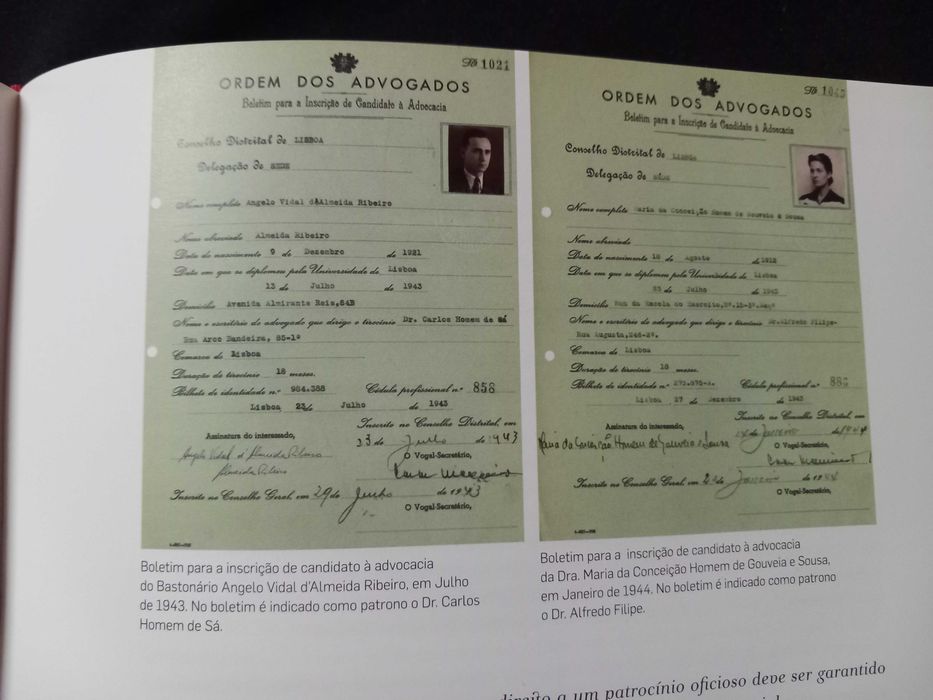 Nº 1021
ORDEM DOS ADVOGADOS
Boletim para a Inscrição de Candidato à Advocacia
Conselho Distrital de LISBOA
Delegação de SEDE
Nome completo Angelo Vidal d'Almeida Ribeiro
Nome abreviado Almeida Ribeiro
Data do nascimento 9 de Dezembro de 1921
Data em que se diplomou pela Universidade de Lisboa
13 de Julho de 1943
Domicílio Avenida Almirante Reis,84B
Nome e escritório do advogado que dirige o tirocínio Dr. Carlos Homem de Sá
Rua Arco Bandeira, 85-1º
Comarca de Lisboa
Duração do tirocínio 18 meses.
Bilhete de identidade nº 984.388 Cédula profissional nº 858
Lisboa 23 de Julho de 1943
Assinatura do interessado,
Angelo Vidal d'Almeida Ribeiro
Almeida Ribeiro
Inscrito no Conselho Distrital, em
23 de Julho de 1943
O Vogal-Secretário,
Inscrito no Conselho Geral, em 29 de Julho de 1943
O Vogal-Secretário,
Boletim para a inscrição de candidato à advocacia
do Bastonário Angelo Vidal d'Almeida Ribeiro, em Julho
de 1943. No boletim é indicado como patrono o Dr. Carlos
Homem de Sá.
Nº
ORDEM DOS ADVOGADOS
Boletim para a Inscrição de Candidato à Advocacia
Conselho Distrital de LISBOA
Delegação de SÉDE
Nome completo Maria da Conceição Homem de Gouveia e Sousa
Nome abreviado
Data do nascimento de Agosto de 1912
Data em que se diplomou pela Universidade de Lisboa
de Julho de 1943
Domicílio Rua da Escola do Exercito,
Nome e escritório do advogado que dirige o tirocínio Dr.Alfredo Filipe-
Rua Augusta,246-2º.
Comarca de Lisboa
Duração do tirocínio 18 meses.
Bilhete de identidade nº Cédula profissional nº
Lisboa 27 de Dezembro de 1943
Assinatura do interessado,
Maria da Conceição Homem de Gouveia e Sousa
Inscrito no Conselho Distrital, em
de Janeiro de 1944
O Vogal-Secretário,
Inscrito no Conselho Geral, em de Janeiro de 1944
O Vogal-Secretário,
Boletim para a inscrição de candidato à advocacia
da Dra. Maria da Conceição Homem de Gouveia e Sousa,
em Janeiro de 1944. No boletim é indicado como patrono
o Dr. Alfredo Filipe.
direito a um patrocínio oficioso deve ser garantido